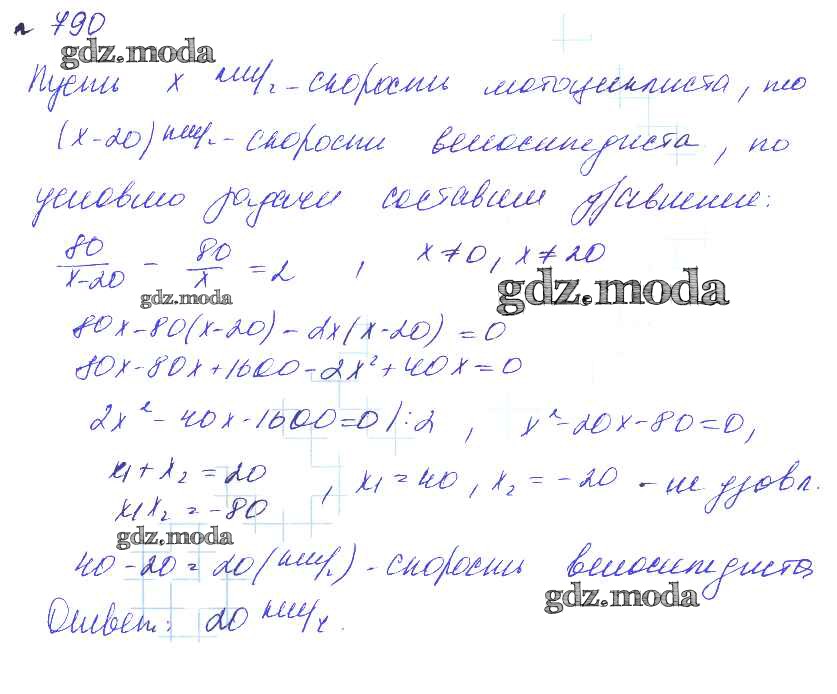 № 790
gdz.moda
Пусть x км/ч - скорость мотоциклиста, то
(x-20) км/ч - скорость велосипедиста, по
условию задачи составим уравнение:
80/(x-20) - 80/x = 2 , x≠0, x≠20
gdz.moda
gdz.moda
80x-80(x-20)-2x(x-20)=0
80x-80x+1600-2x²+40x=0
2x²-40x-1600=0 /:2 , x²-20x-80=0,
x₁+x₂=20
x₁x₂=-80 , x₁=40, x₂=-20 - не удовл.
gdz.moda
40-20=20(км/ч) - скорость велосипедиста
gdz.moda
Ответ: 20 км/ч.